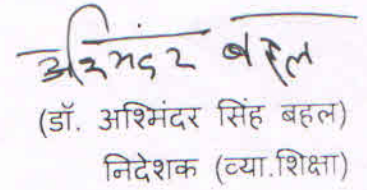 अश्मिंदर बहल
(डॉ. अश्मिंदर सिंह बहल)
निदेशक (व्या.शिक्षा)